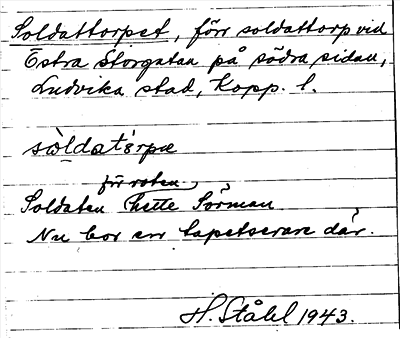 Soldattorpet, förr soldattorp vid
Östra Storgatan på södra sidan,
Ludvika stad, Kopp. l.
sòldat'ɔrpæ
för roten
Soldaten hette Sörman
Nu bor en tapetserare där.
H. Ståhl 1943.